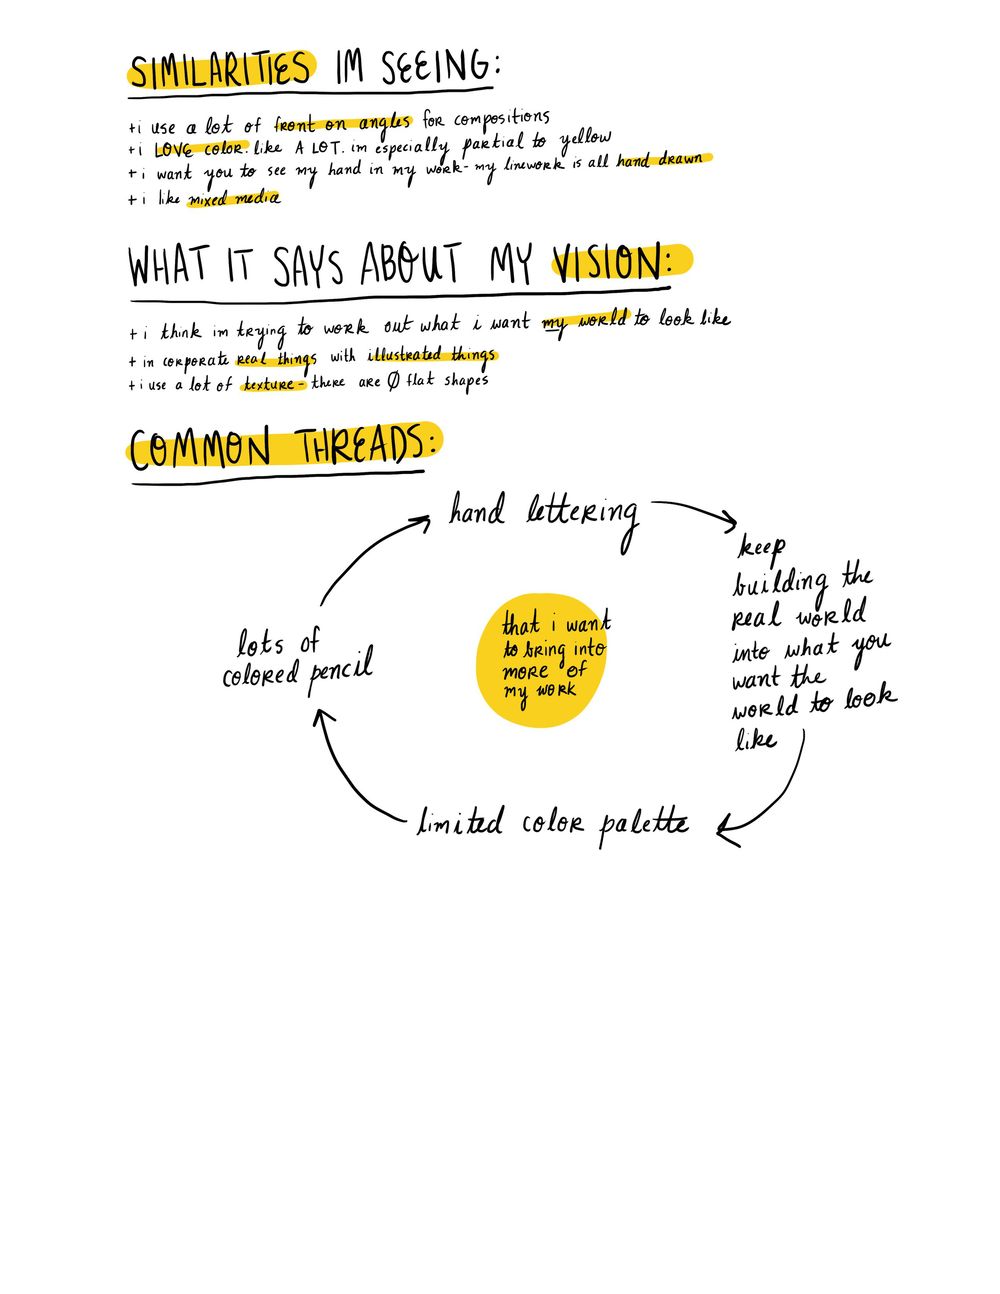 SIMILARITIES IM SEEING:
+i use a lot of front on angles for compositions
+i LOVE color. like A LOT. im especially partial to yellow
+i want you to see my hand in my work- my linework is all hand drawn
+i like mixed media
WHAT IT SAYS ABOUT MY VISION:
+i think im trying to work out what i want my world to look like
+ in corporate real things with illustrated things
+i use a lot of texture- there are Ø flat shapes
COMMON THREADS:
hand lettering
keep
building the
real world
into what you
want the
world to look
like
limited color palette
lots of
colored pencil
that i want
to bring into
more of
my work